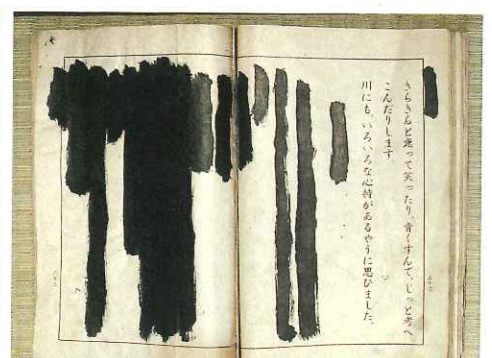 きらきらと光って笑ったり、青くすんで、じっと考へ
こんだりします。
川にも、いろいろな心持があるやうに思ひました。